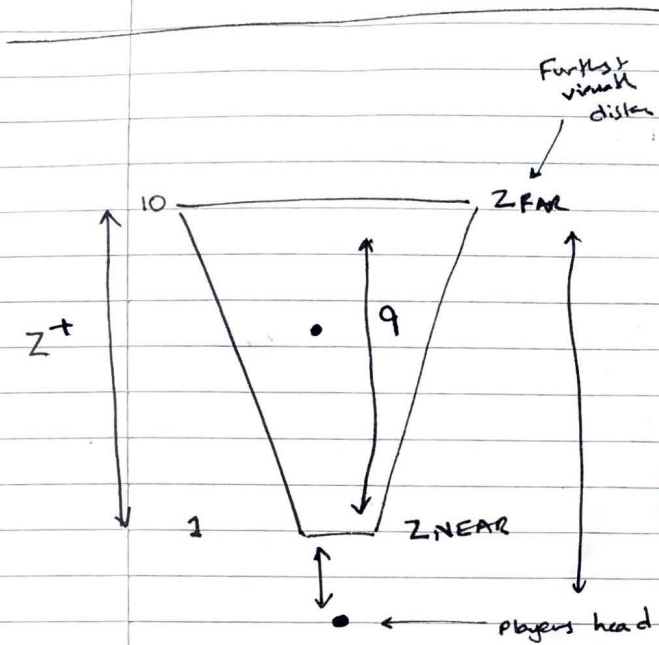 Furthest
visuable
distan
10
Z FAR
Z+
9
1
Z NEAR
players head